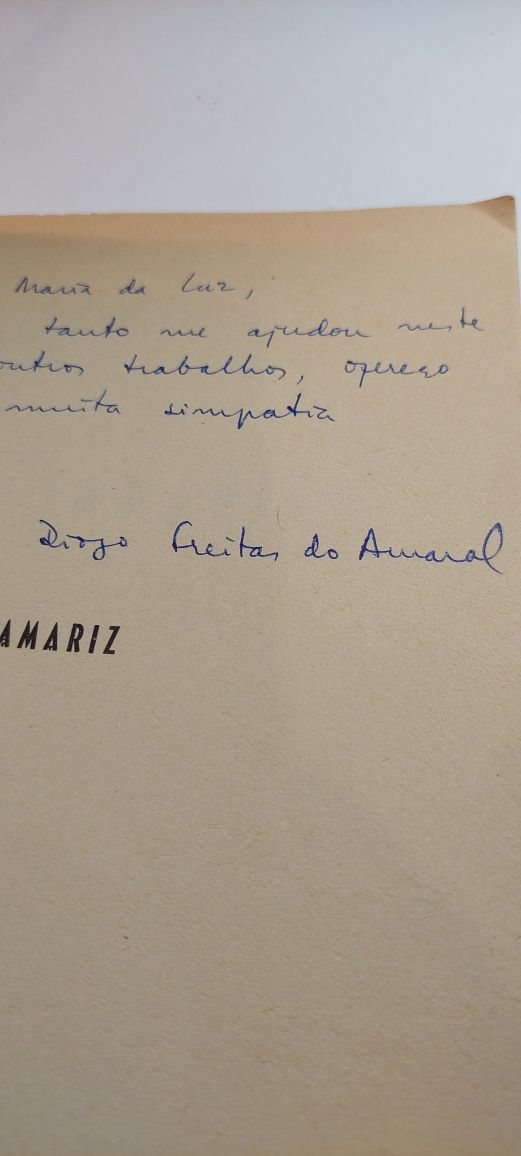 Maria da Luz,
tanto me ajudou neste
outros trabalhos, ofereço
muita simpatia
Diogo Freitas do Amaral
AMARIZ